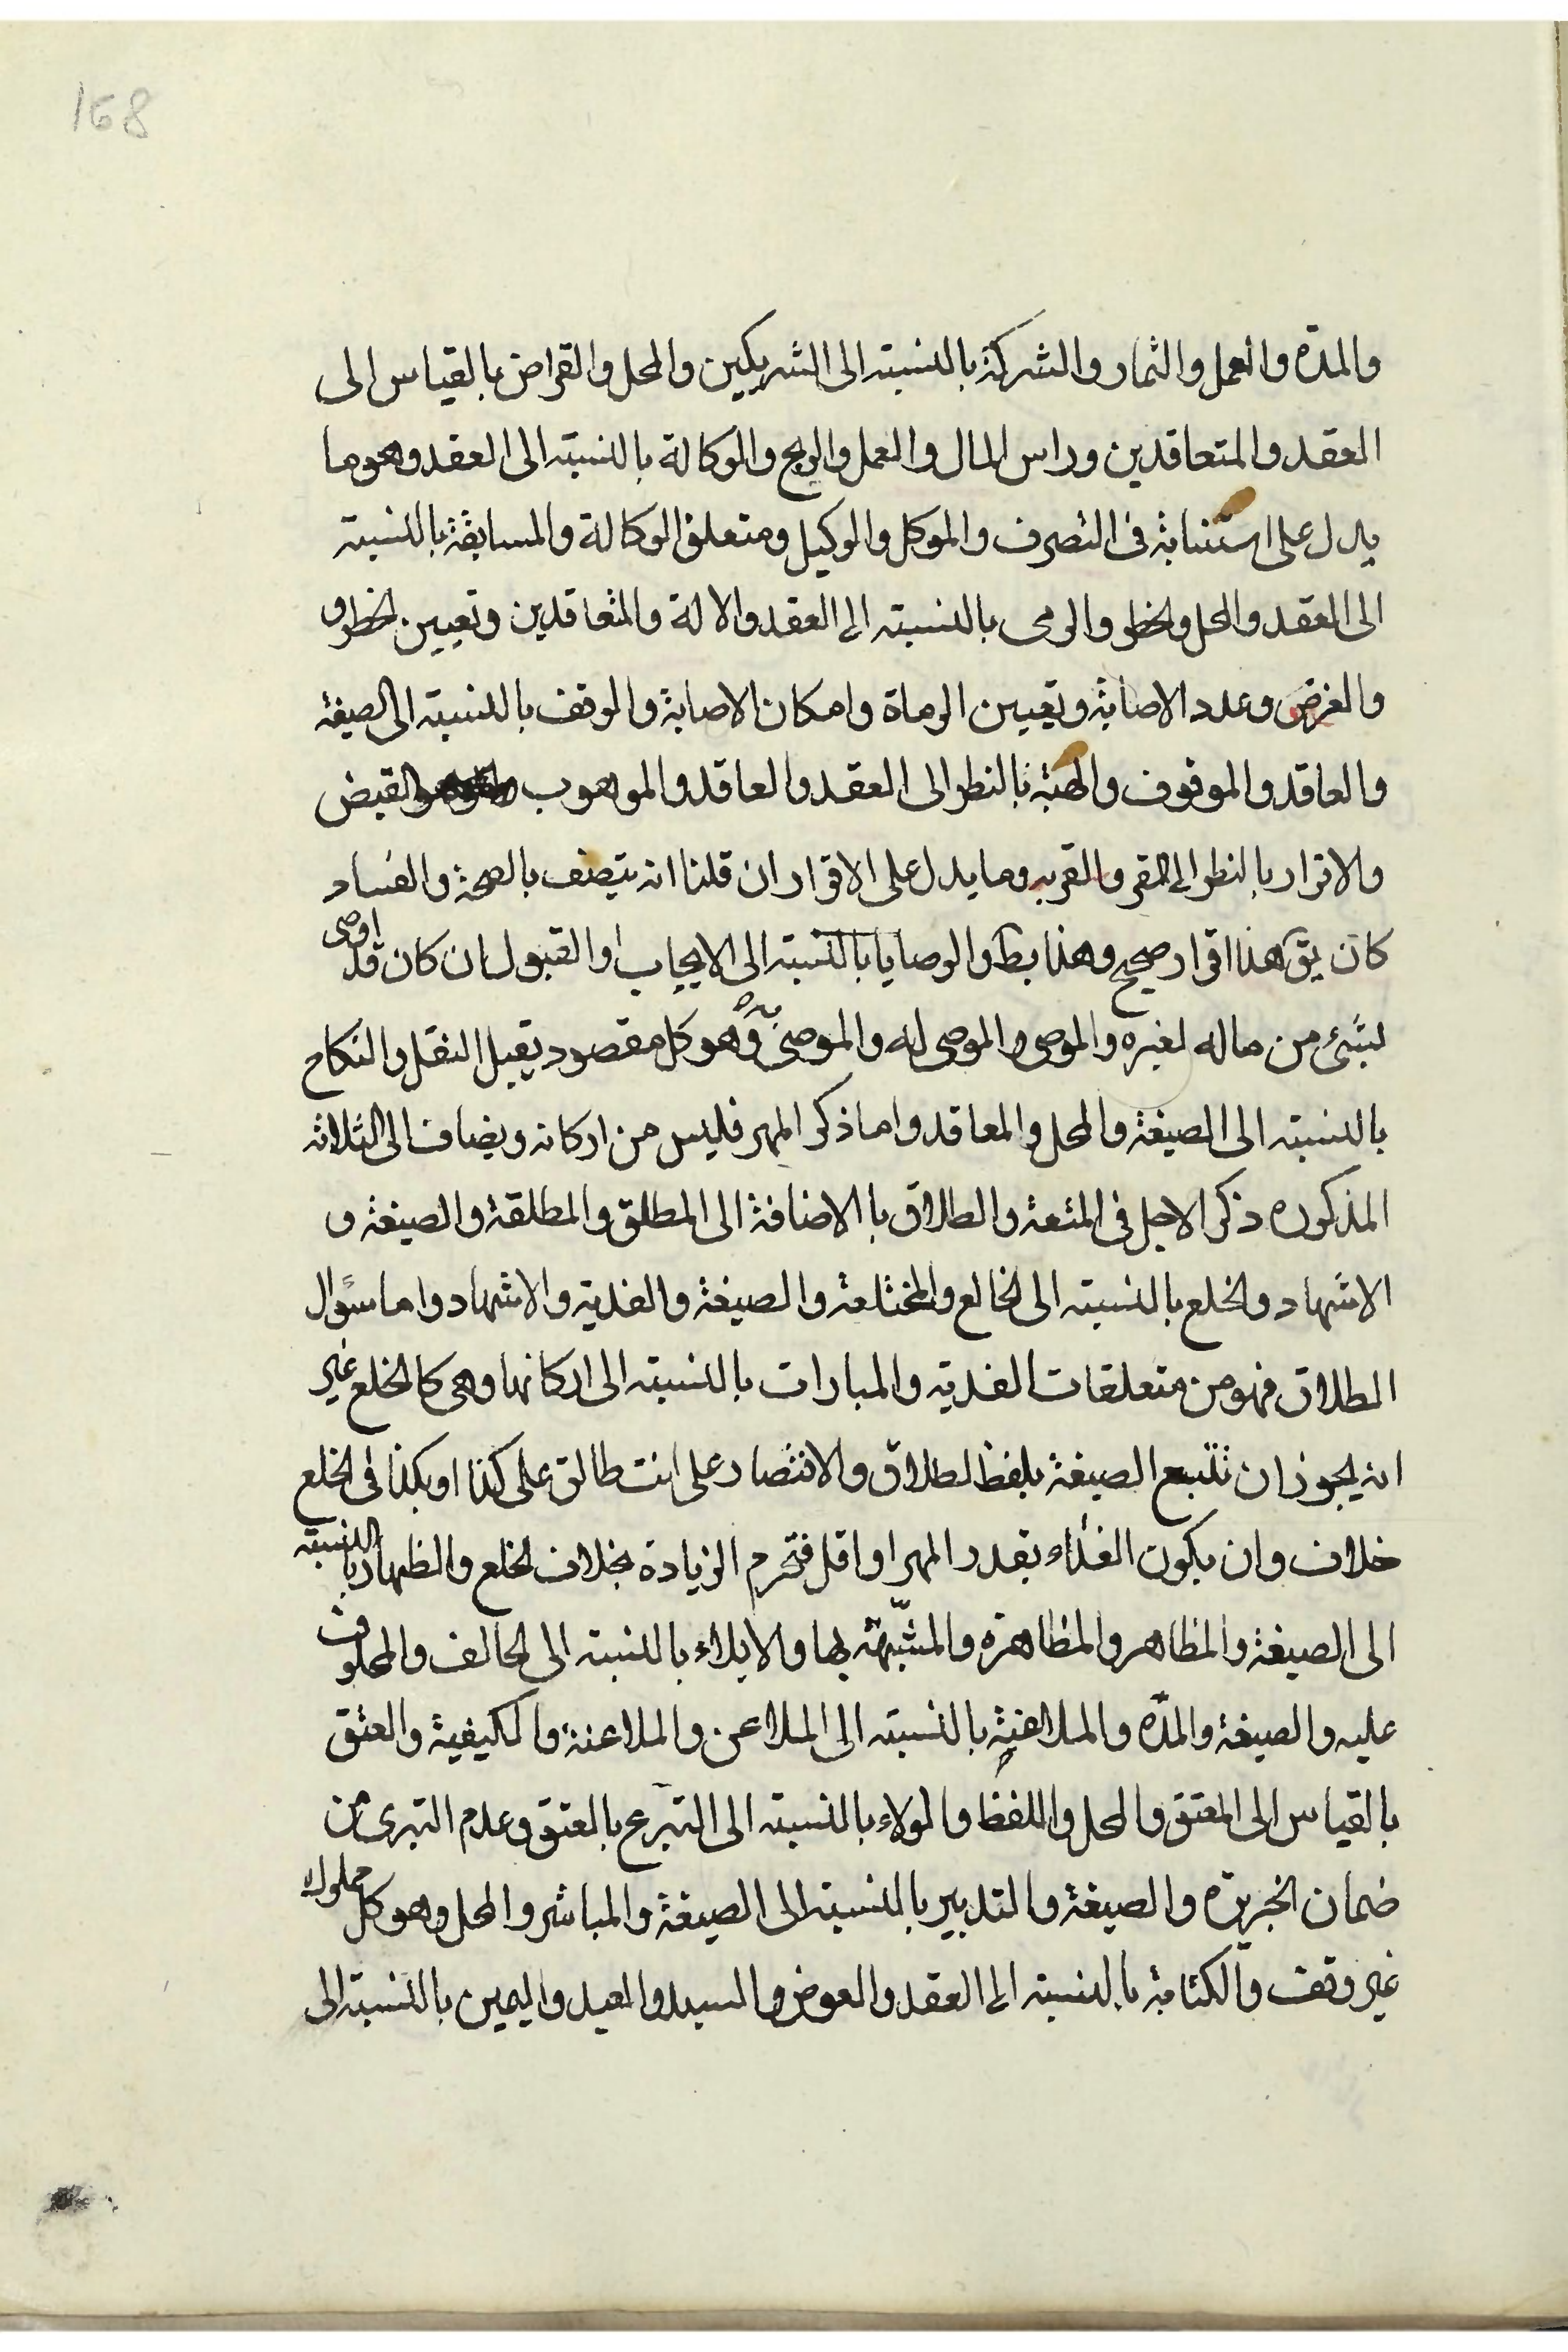 168
والمدة والعمل والثمار والشركة بالنسبته الى الشريكين والمحل والقراض بالقياس الى
العقد والمتعاقدين وراس المال والعمل والربح والوكالة بالنسبته الى العقد وهو ما
يدل على استنابة فى التصرف والموكل والوكيل ومتعلق الوكالة والمسابقة بالنسبته
الى العقد والمحل والخطر والرمى بالنسبته الى العقد والالة والمتعاقدين وتعيين الخطر و
والغرض وعدد الاصابة وتعيين الرماة وامكان الاصابة والوقف بالنسبته الى الصيغة
والعاقد والموقوف والهبة بالنظر الى العقد والعاقد والموهوب والقبض
والاقرار بالنظر الى المقر والمقر به وما يدل على الاقرار ان قلنا انه يتصف بالصحة والفساد
كان يق هذا اقرار صحيح وهذا بط والوصايا بالنسبته الى الايجاب والقبول ان كان قد اوصى
بشئ من ماله لغيره والموصى والموصى له والموصى به وهو كل مقصود يقبل النقل والنكاح
بالنسبته الى الصيغة والمحل والمعاقد واما ذكر المهر فليس من اركانه ويضاف الى الثلاثه
المذكوره ذكر الاجل فى المتعة والطلاق بالاضافة الى المطلق والمطلقة والصيغة و
الاشهاد والخلع بالنسبته الى الخالع والمختلعة والصيغة والفدية والاشهاد واما سؤال
الطلاق فهو من متعلقات الفدية والمبارات بالنسبته الى اركانها وهى كالخلع غير
انه يجوز ان تتبع الصيغة بلفظ الطلاق والاقتصار على انت طالق على كذا او بكذا فى الخلع
خلاف وان يكون الفداء بقدر المهر او اقل فتحرم الزيادة بخلاف الخلع والظهار بالنسبته
الى الصيغة والمظاهر والمظاهرة والمشبّهة بها والايلاء بالنسبته الى الحالف والمحلوف
عليه والصيغة والمدّه والملاعنة بالنسبته الى الملاعن والملاعنة والكيفية والعتق
بالقياس الى المعتق والمحل واللفظ والولاء بالنسبته الى التبرع بالعتق وعدم التبرى من
ضمان الجريرة والصيغة والتدبير بالنسبته الى الصيغة والمباشر والمحل وهو كل مملوك
غير وقف والكتابة بالنسبته الى العقد والعوض والسيد والعبد واليمين بالنسبته الى